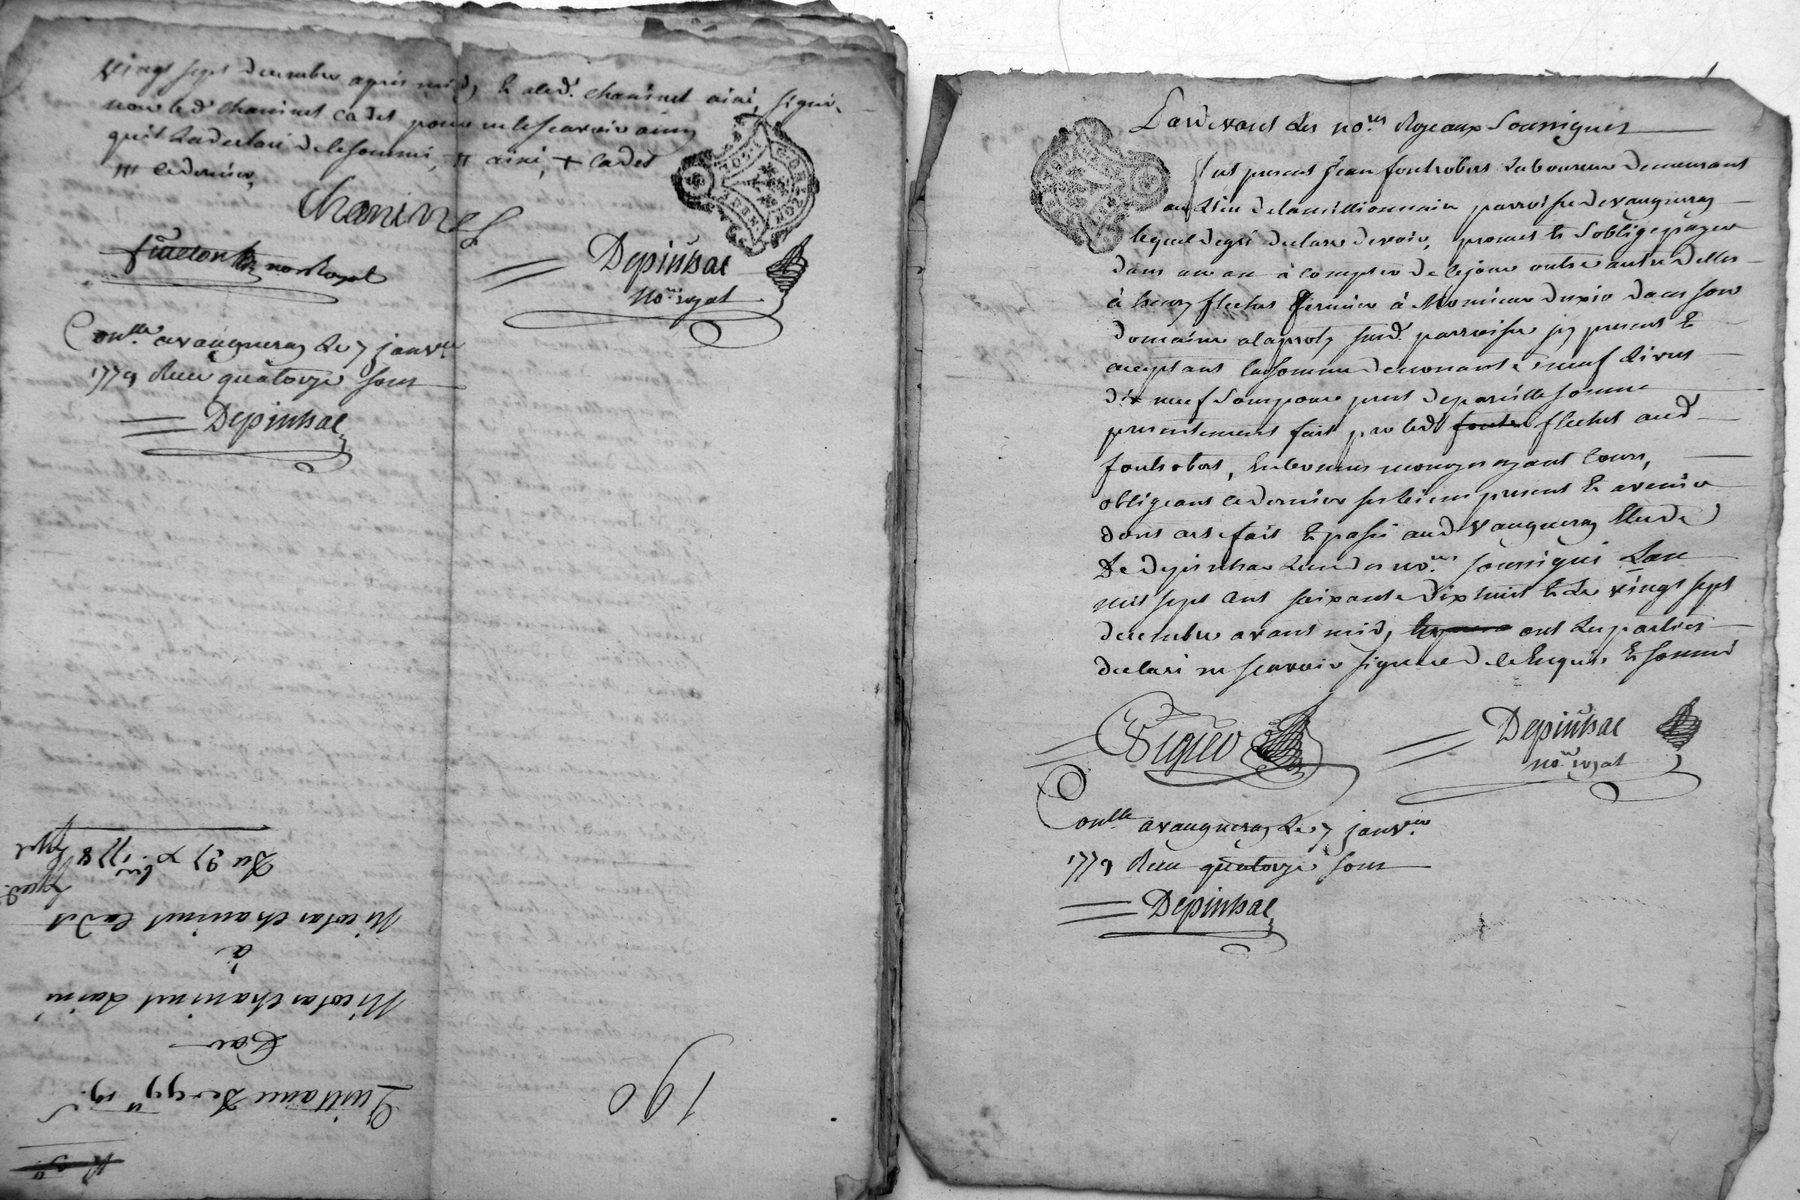 vingt sept decembre apres midi, et aled. chaninet ainé, signé,
non led chaninet cadet pour ne le scavoir ainsy
quil la declaré de ce sommé, # ainé, + cadet
/// ce dernier,
Chaninet
nore royal
Depinhac
nore. royal
Conlle. a vaugneray le 7 janvier
1779 Reçu quatorze sous
Depinhac
No. 3
Quittance de
Par
Nicolas chaninet L'ainé
à
Nicolas chaninet cadet
Du 27 Xbre. 1778
Exped.
190
Pardevant les nores. Royaux soussignés
fut present Jean fontrobert Laboureur demeurant
au Lieu de la millionniere parroisse de vaugneray
lequel de gré declare devoir, promet et s'oblige payer
dans un an à compter de ce jour outre autre dettes
à Henry flechet fermier à Monsieur dans son
domaine susd. parroisse icy present et
acceptant la somme de nonante neuf livres
dix neuf sous pour pret de pareille somme
presentement fait par led flechet aud
fontrobert, en bonnes monoyes ayant cours,
obligeant ce dernier ses biens present et avenir
dont acte fait et passé aud vaugneray Etude
De depinhac L'un des nores. soussigné L'an
mil sept cent soixante dix huit et Le vingt sept
decembre avant midi, ont les parties
declaré ne scavoir signer de ce Enquis et sommé
Depinhac
nore royal
Conlle a vaugneray le 7 janvier.
1779 Reçu quatorze sous
Depinhac